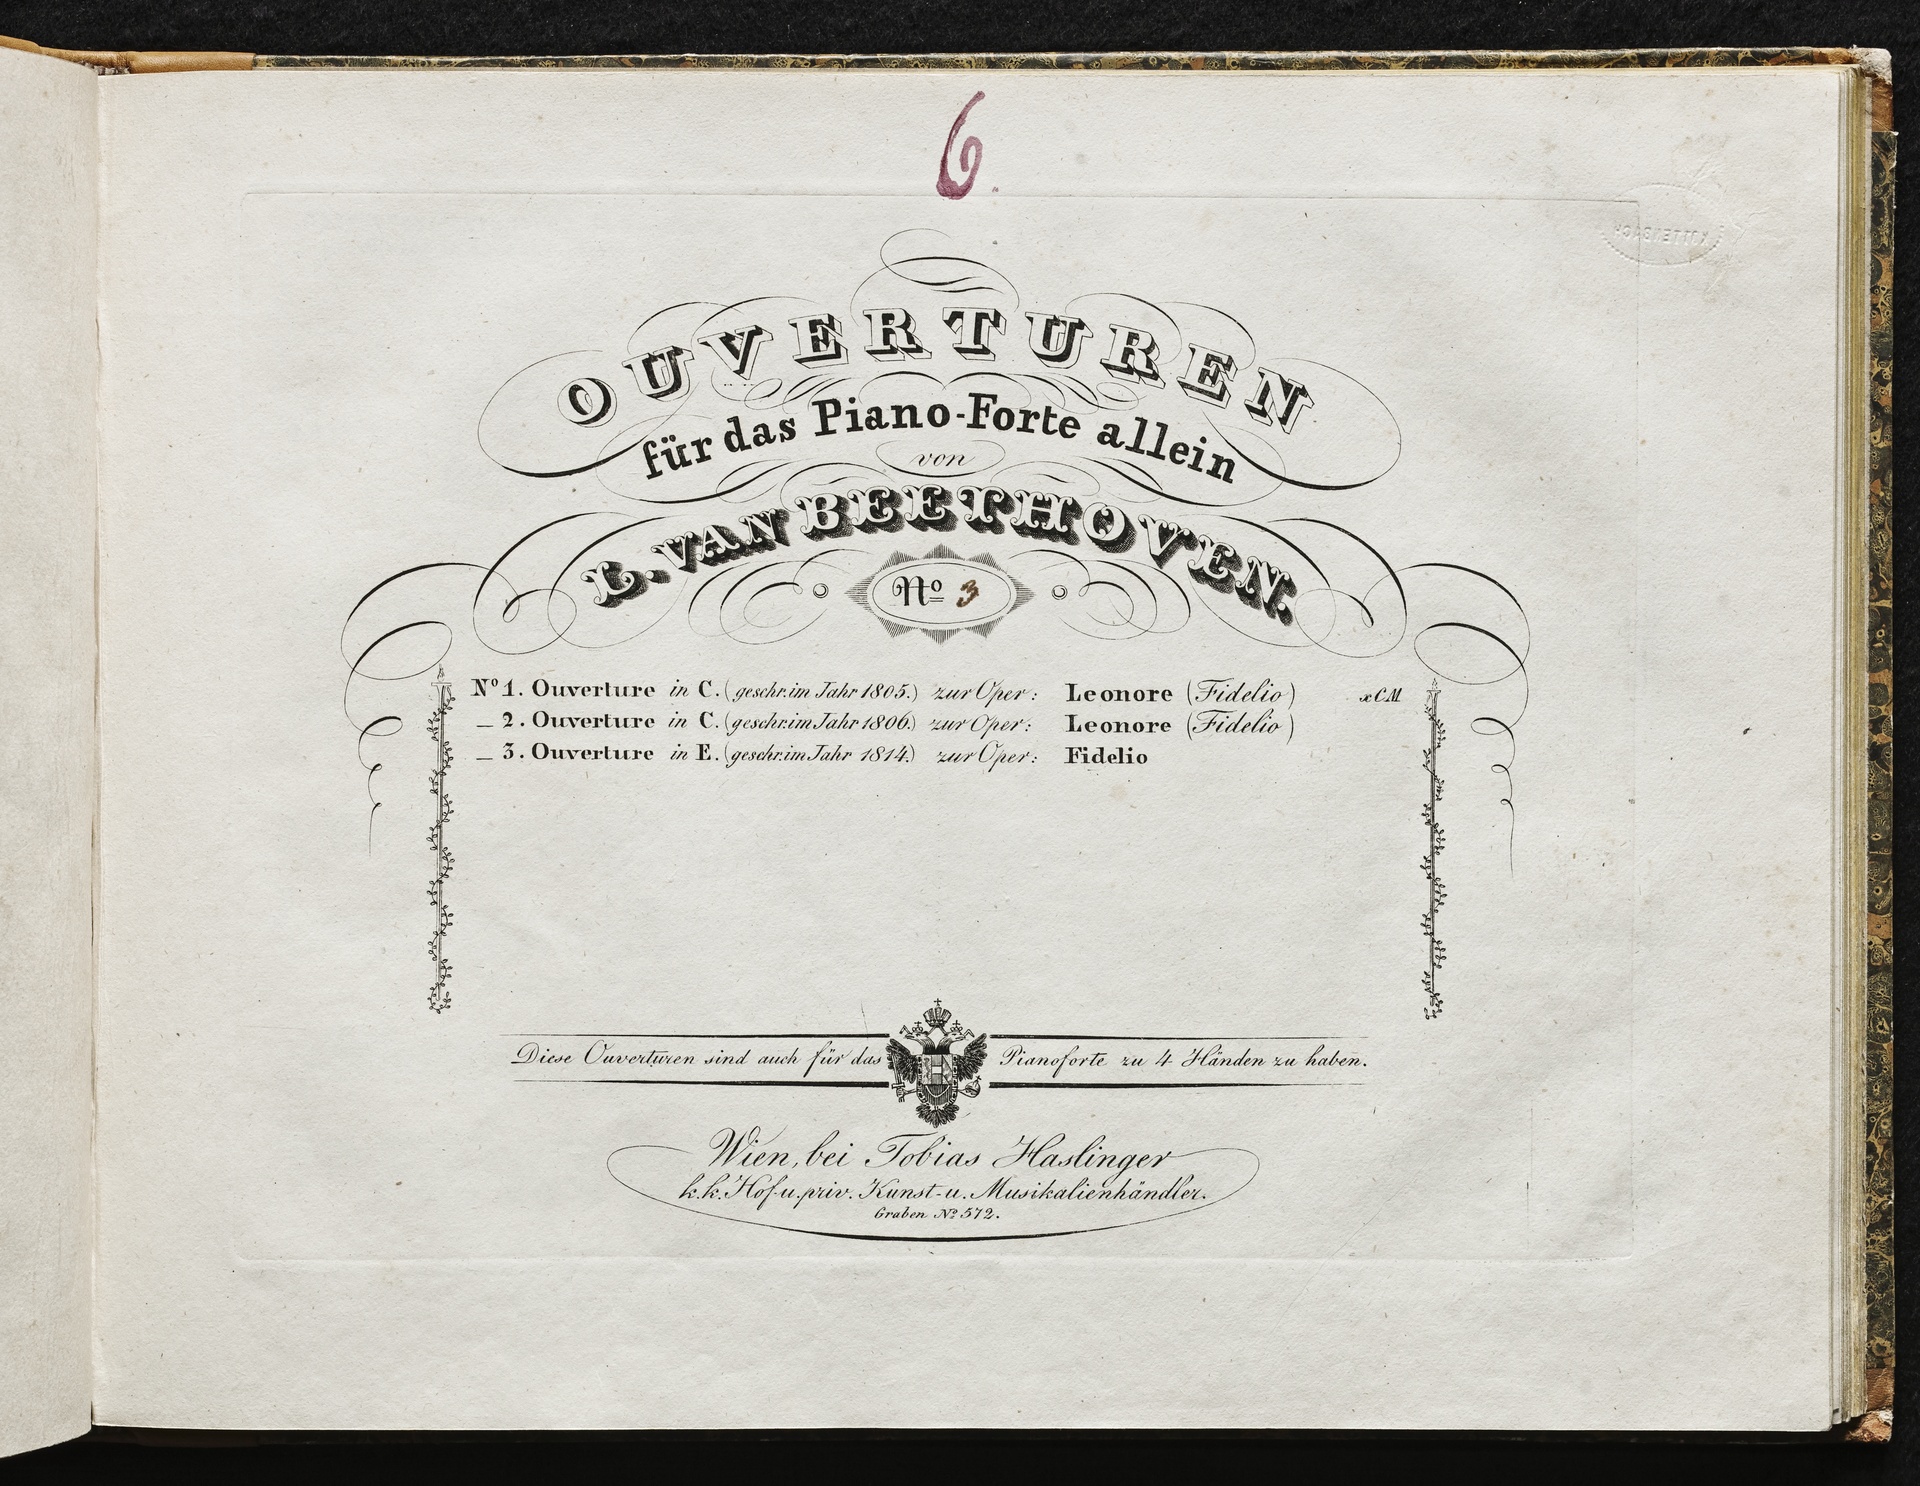 6.
OUVERTUREN
für das Piano-Forte allein
von
L. VAN BEETHOVEN.
No 3
No 1. Ouverture in C. (geschr. im Jahr 1805.) zur Oper: Leonore (Fidelio) xCM
_ 2. Ouverture in C. (geschr. im Jahr 1806.) zur Oper: Leonore (Fidelio)
_ 3. Ouverture in E. (geschr. im Jahr 1814.) zur Oper: Fidelio
Diese Ouverturen sind auch für das Pianoforte zu 4 Händen zu haben.
Wien, bei Tobias Haslinger
k.k. Hof- u. priv. Kunst- u. Musikalienhändler.
Graben No 572.